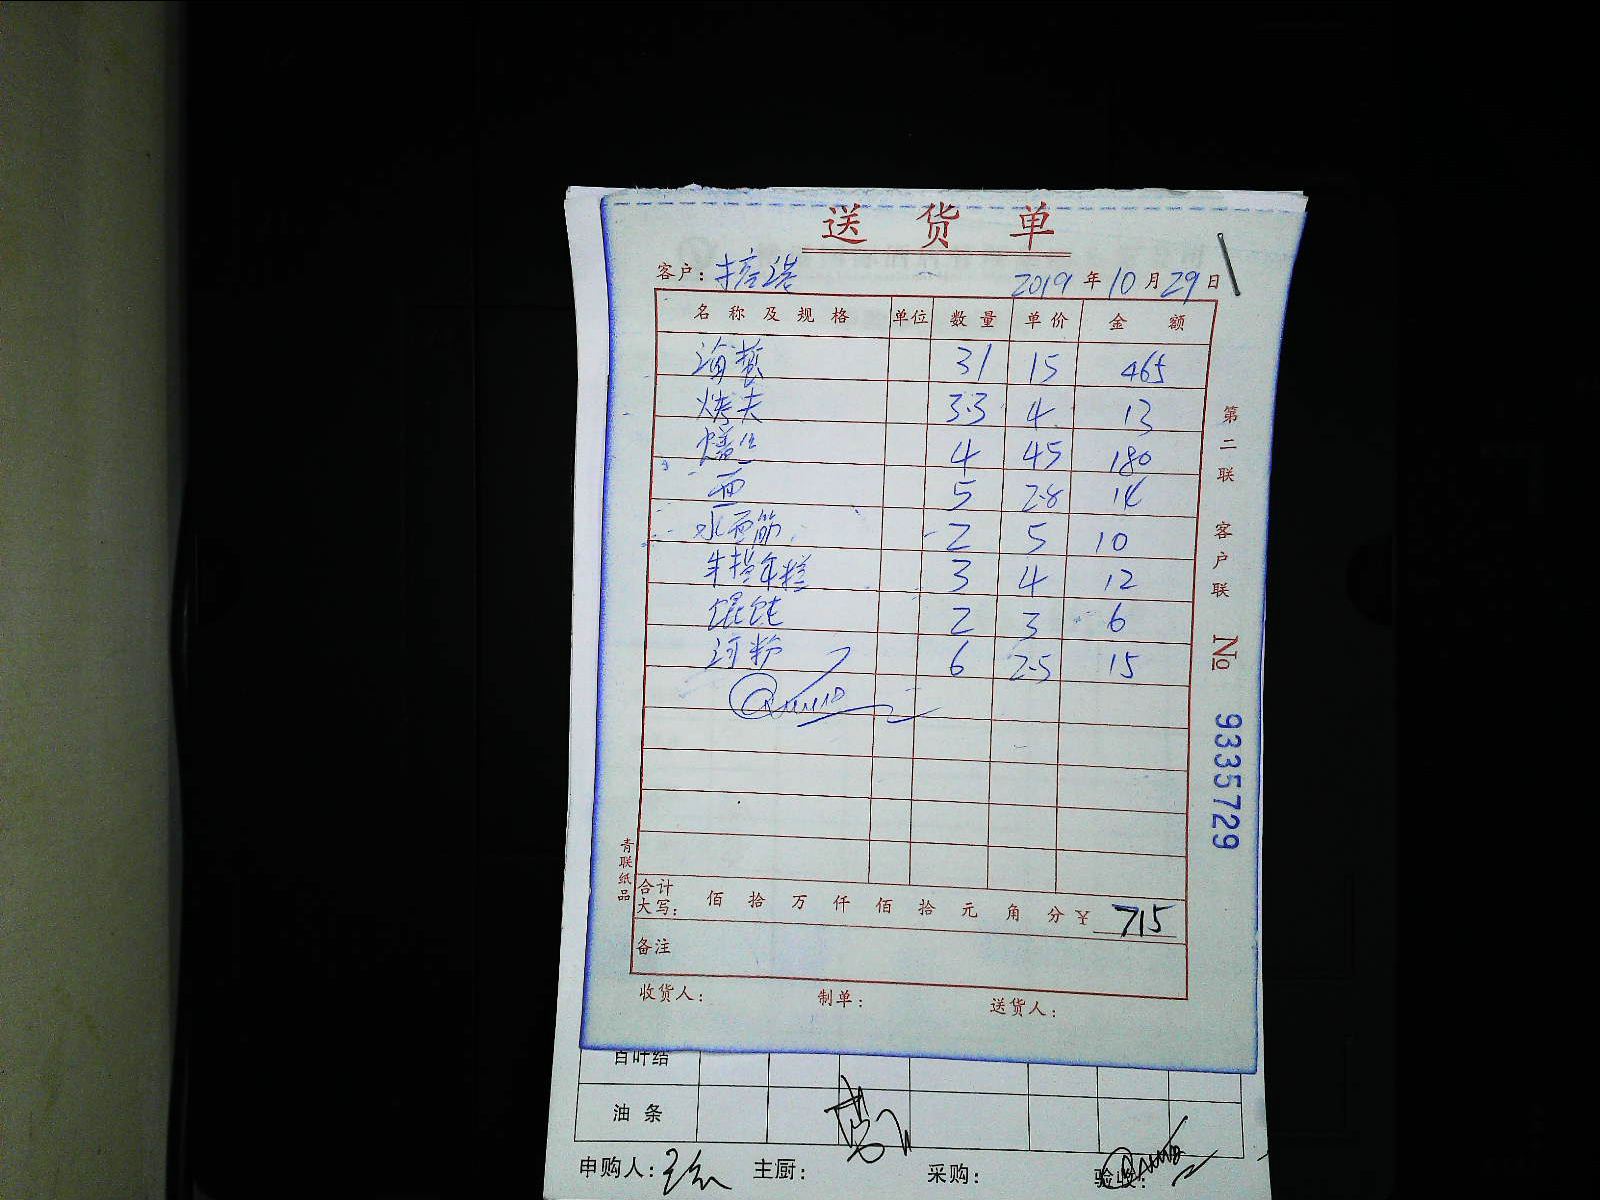 送货单
客户： 2019年10月29日
名称及规格 单位 数量 单价 金额
海蜇 31 15 465
烤夫 3.3 4 13
4 45 180
面 5 2.8 14
水面筋 2 5 10
年糕 3 4 12
馄饨 2 3 6
河粉 6 2.5 15
第二联 客户联 No 9335729
青联纸品
合计大写： 佰 拾 万 仟 佰 拾 元 角 分 ¥ 715
备注
收货人： 制单： 送货人：
百叶结
油条
申购人： 主厨： 采购： 验收：